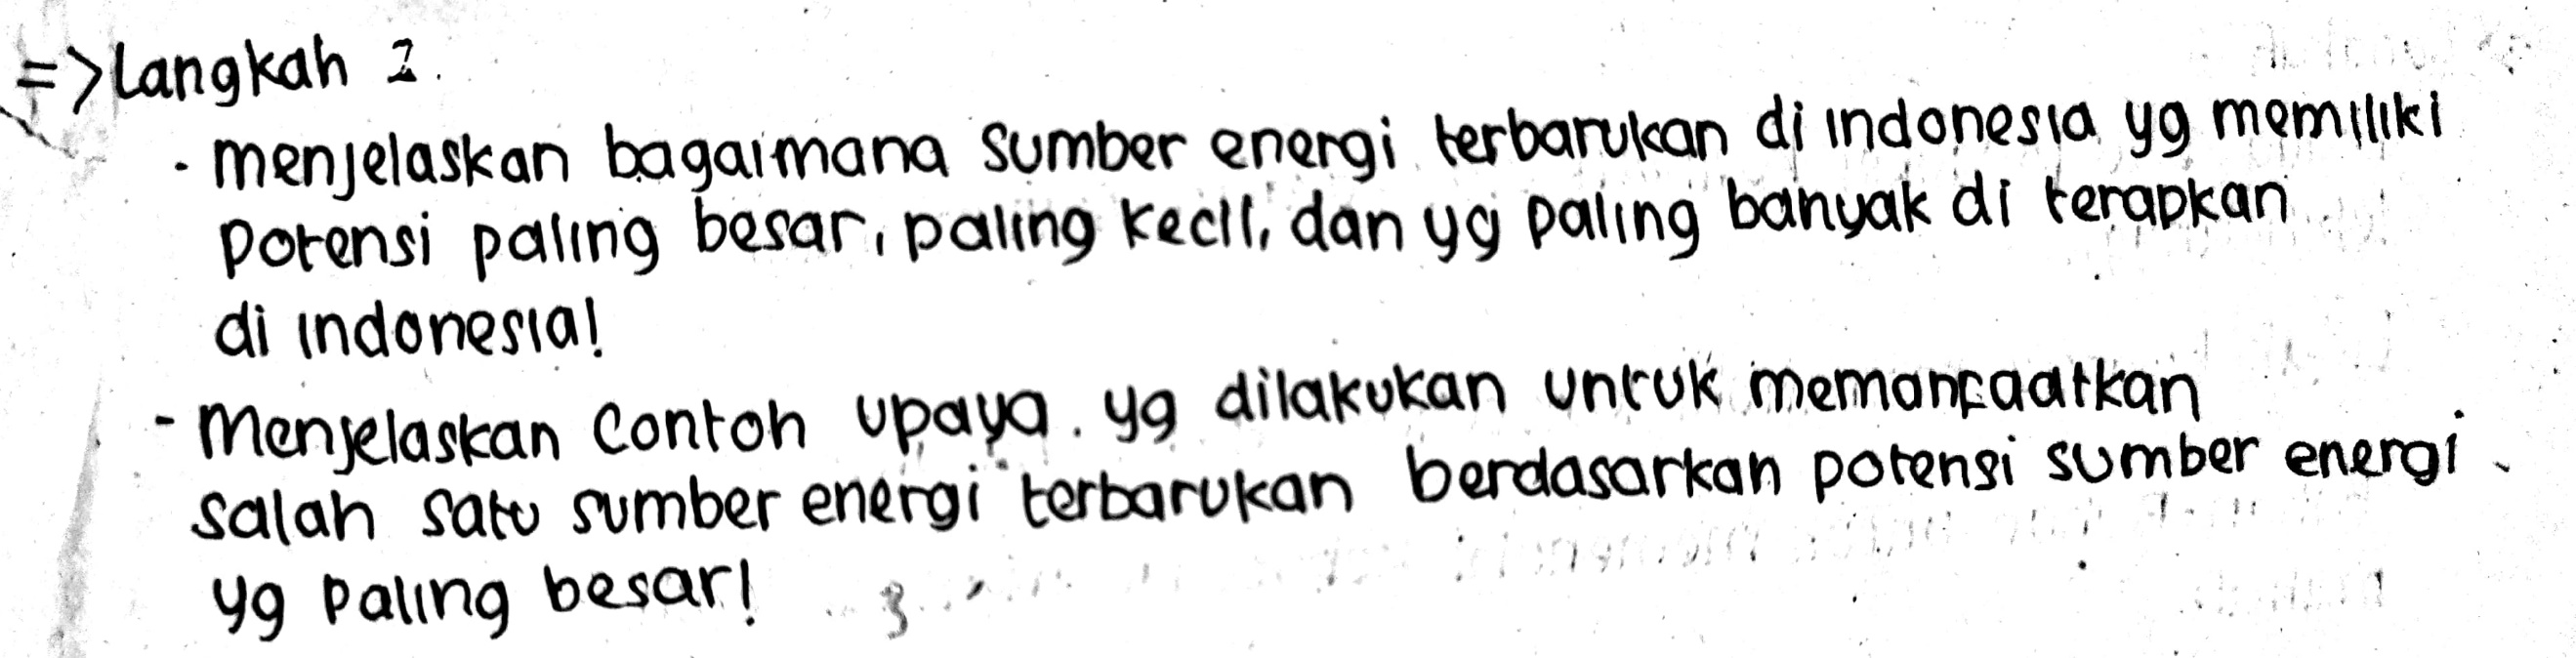 => Langkah 2.
· menjelaskan bagaimana sumber energi terbarukan di indonesia yg memiliki
potensi paling besar, paling kecil, dan yg paling banyak di terapkan
di indonesia!
- Menjelaskan contoh upaya. yg dilakukan untuk memanfaatkan
salah satu sumber energi terbarukan berdasarkan potensi sumber energi
yg paling besar!